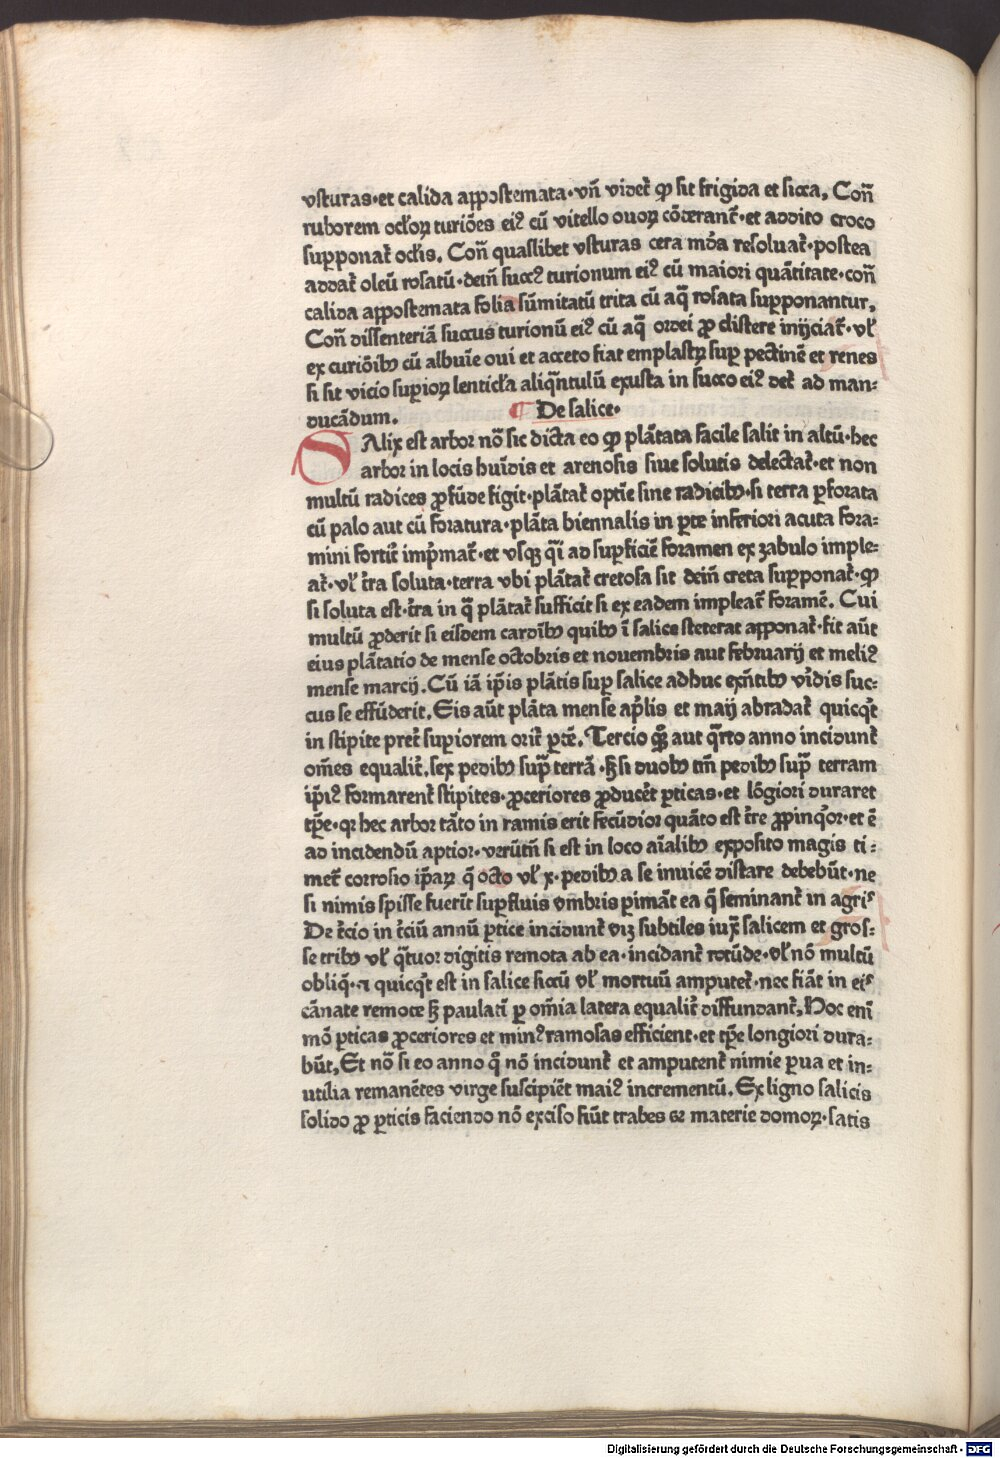 vsturas·et calida appostemata·vñ videt̄ ꝙ sit frigida et sicca, Coñ
ruborem ocl̓oꝝ turiōes eiꝰ cū vitello ouoꝝ cōterant̄·et addito croco
suꝑponat̄ ocl̓is. Coñ quaslibet vsturas cera mōa resoluat̄·postea
addat̄ oleū rosatū·deiñ succꝰ turionum eiꝰ cū maiori quātitate·coñ
calida appostemata folia sūmitatū trita cū aq̄ rosata suꝑponantur,
Coñ dissenteriā succus turionū eiꝰ cū aq̄ ordei ꝓ clistere inijciat̄·vl̓
ex curiōibꝰ cū albuīe oui et acceto fiat emplastꝝ suꝑ pectinē et renes
si sit vicio suꝑioꝝ lenticl̓a aliq̄ntulū exusta in succo eiꝰ det̄ ad man⸗
ducādum. ¶ De salice·
SAlix est arbor nō sic dicta eo ꝙ plātata facile salit in altū·hec
arbor in locis huīdis et arenosis siue solutis delectat̄·et non
multū radices ꝓfūde figit·plātat̄ optīe sine radicibꝰ·si terra ꝑforata
cū palo aut cū foratura·plāta biennalis in ꝑte inferiori acuta fora⸗
mini fortit̓ imp̓mat̄·et vsqꝫ q̄i ad suꝑficiē foramen ex zabulo imple⸗
at̄·vl̓ t̄ra soluta·terra vbi plātat̄ cretosa sit deiñ creta suꝑponat̄·ꝙ
si soluta est·t̄ra in q̄ plātat̄ sufficit si ex eadem impleat̄ foramē. Cui
multū ꝓderit si eisdem cardībꝰ quibꝰ ī salice steterat apponat̄·fit aūt
eius plātatio de mense octobris et nouembris aut februarij et meliꝰ
mense marcij. Cū iā ip̄is plātis suꝑ salice adhuc exn̄tibꝰ v̓idis suc⸗
cus se effūderit. Eis aūt plāta mense ap̓lis et maij abradat̄ quicq̓t
in stipite pret̄ suꝑiorem orit̄ ꝑtē. Tercio aut q̄rto anno incidunt̄
om̄es equalit̓, sex pedibꝰ sup̄ terrā·si duobꝰ tm̄ pedibꝰ sup̄ terram
ip̄iꝰ formarent̄ stipites·ꝓceriores ꝓducēt ꝑticas·et lōgiori duraret
tp̄e·qꝛ hec arbor tāto in ramis erit fecūdior quāto est t̄re ꝓpinq̓or·et ē
ad incidendū aptior·verūtn̄ si est in loco aīalibꝰ exposito magis ti⸗
met̄ corrosio ip̄aꝝ q̄ octo vl̓ x·pedibꝰ a se inuicē distare debebūt·ne
si nimis spisse fuerīt suꝑfluis vmbris ꝑimāt ea q̄ seminant̄ in agris
De t̓cio in t̓ciū annū ꝑtice incidunt̄ vꝫ subtiles iux̄ salicem et gros⸗
se tribꝰ vl̓ q̄tuor digitis remota ab ea·incidant̄ rotūde·vl̓ nō multū
obliq̄·⁊ quicq̓t est in salice siccū vl̓ mortuū amputet̄·nec fiāt in eis
cānate remote paulatī ꝑ om̄ia latera equalit̓ diffundant̄, Hoc enī
mō ꝑticas ꝓceriores et minꝰ ramosas efficient·et tp̄e longiori dura⸗
būt, Et nō si eo anno q̄ nō incidunt̄ et amputent̄ nimie ꝑua et in⸗
utilia remanētes virge suscipiēt maiꝰ incrementū. Ex ligno salicis
solido ꝓ ꝑticis faciendo nō exciso fiūt trabes ⁊ materie domoꝝ·satis
Digitalisierung gefördert durch die Deutsche Forschungsgemeinschaft - DFG